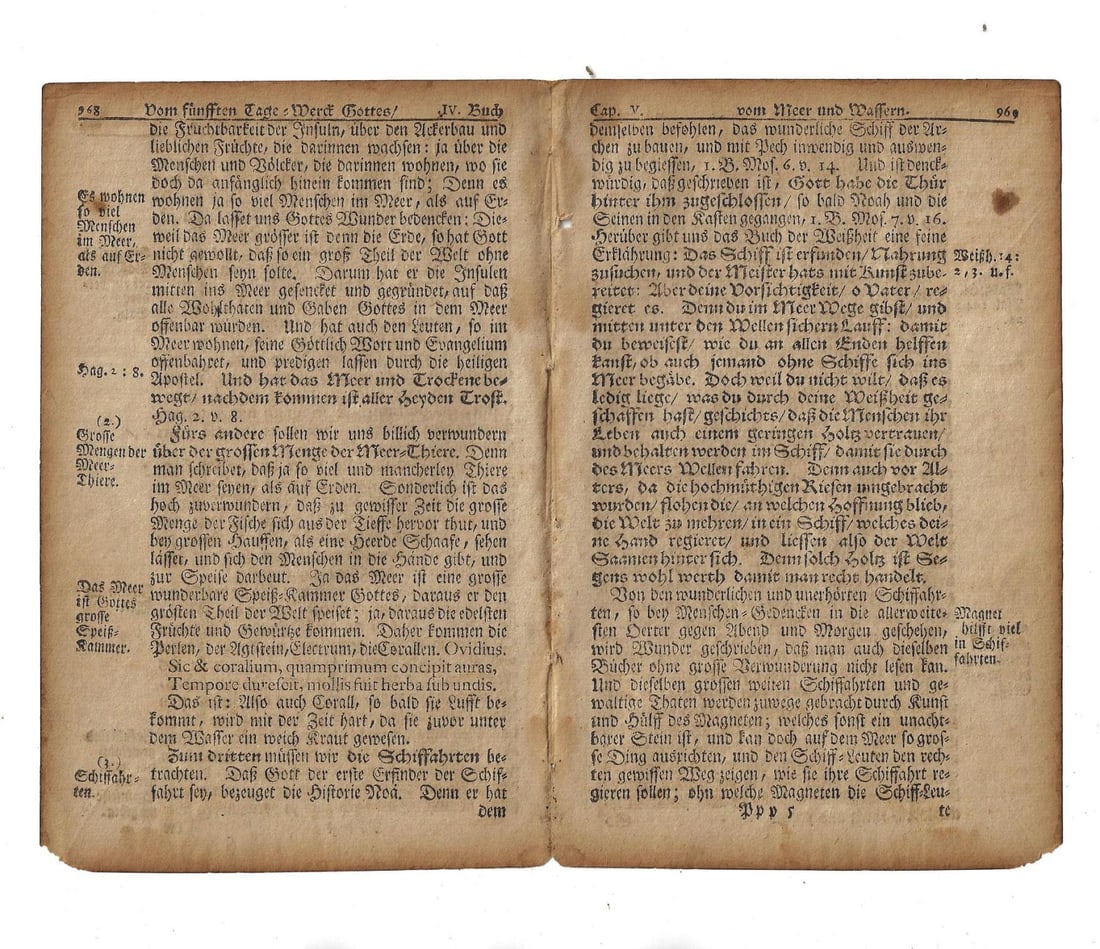 968 Vom fünfften Tage-Werck Gottes/ IV. Buch
die Fruchtbarkeit der Insuln, über den Ackerbau und
lieblichen Früchte, die darinnen wachsen: ja über die
Menschen und Völcker, die darinnen wohnen, wo sie
doch da anfänglich hinein kommen sind; Denn es
wohnen ja so viel Menschen im Meer, als auf Er-
den. Da lasset uns Gottes Wunder bedencken: Die-
weil das Meer grösser ist denn die Erde, so hat Gott
nicht gewollt, daß so ein groß Theil der Welt ohne
Menschen seyn solte. Darum hat er die Insulen
mitten ins Meer gesencket und gegründet, auf daß
alle Wohlthaten und Gaben Gottes in dem Meer
offenbar würden. Und hat auch den Leuten, so im
Meer wohnen, seine Göttlich Wort und Evangelium
offenbahret, und predigen lassen durch die heiligen
Apostel. Und hat das Meer und Trockene be-
wegt/ nachdem kommen ist aller Heyden Trost.
Hag. 2. v. 8.
Fürs andere sollen wir uns billich verwundern
über der grossen Menge der Meer-Thiere. Denn
man schreibet, daß ja so viel und mancherley Thiere
im Meer seyen, als auf Erden. Sonderlich ist das
hoch zuverwundern, daß zu gewisser Zeit die grosse
Menge der Fische sich aus der Tieffe hervor thut, und
bey grossen Hauffen, als eine Heerde Schaafe, sehen
lässet, und sich den Menschen in die Hände gibt, und
zur Speise darbeut. Ja das Meer ist eine grosse
wunderbare Speiß-Kammer Gottes, daraus er den
grösten Theil der Welt speiset; ja, daraus die edelsten
Früchte und Gewürtze kommen. Daher kommen die
Perlen, der Agtstein, Electrum, die Corallen. Ovidius.
Sic & coralium, quamprimum concipit auras,
Tempore durescit, mollis fuit herba sub undis.
Das ist: Also auch Corall, so bald sie Lufft be-
kommt, wird mit der Zeit hart, da sie zuvor unter
dem Wasser ein weich Kraut gewesen.
Zum dritten müssen wir die Schiffahrten be-
trachten. Daß Gott der erste Erfinder der Schif-
fahrt sey, bezeuget die Historie Noä. Denn er hat
dem
Es wohnen
so viel
Menschen
im Meer,
als auf Er-
den.
Hag. 2: 8.
(2.)
Grosse
Mengen der
Meer-
Thiere.
Das Meer
ist Gottes
grosse
Speiß-
Kammer.
(3.)
Schiffahr-
ten.
Cap. V. vom Meer und Wassern. 969
demselben befohlen, das wunderliche Schiff der Ar-
chen zu bauen, und mit Pech inwendig und auswen-
dig zu begiessen, 1. B. Mos. 6. v. 14. Und ist denck-
würdig, daß geschrieben ist, Gott habe die Thür
hinter ihm zugeschlossen/ so bald Noah und die
Seinen in den Kasten gegangen, 1. B. Mos. 7. v. 16.
Herüber gibt uns das Buch der Weißheit eine feine
Erklährung: Das Schiff ist erfunden/ Nahrung
zusuchen, und der Meister hats mit Kunst zube-
reitet: Aber deine Vorsichtigkeit/ o Vater/ re-
gieret es. Denn du im Meer Wege gibst/ und
mitten unter den Wellen sichern Lauff: damit
du beweisest/ wie du an allen Enden helffen
kanst, ob auch jemand ohne Schiffe sich ins
Meer begäbe. Doch weil du nicht wilt/ daß es
ledig liege/ was du durch deine Weißheit ge-
schaffen hast/ geschichts/ daß die Menschen ihr
Leben auch einem geringen Holtz vertrauen/
und behalten werden im Schiff/ damit sie durch
des Meers Wellen fahren. Denn auch vor Al-
ters, da die hochmüthigen Riesen umgebracht
wurden/ flohen die/ an welchen Hoffnung blieb,
die Welt zu mehren/ in ein Schiff/ welches dei-
ne Hand regieret/ und liessen also der Welt
Saamen hinter sich. Denn solch Holtz ist Se-
gens wohl werth damit man recht handelt.
Von den wunderlichen und unerhörten Schiffahr-
ten, so bey Menschen-Gedencken in die allerweite-
sten Oerter gegen Abend und Morgen geschehen,
wird Wunder geschrieben, daß man auch dieselben
Bücher ohne grosse Verwunderung nicht lesen kan.
Und dieselben grossen weiten Schiffahrten und ge-
waltige Thaten werden zuwege gebracht durch Kunst
und Hülff des Magneten; welches sonst ein unacht-
barer Stein ist, und kan doch auf dem Meer so gros-
se Ding ausrichten, und den Schiff-Leuten den rech-
ten gewissen Weg zeigen, wie sie ihre Schiffahrt re-
gieren sollen; ohn welche Magneten die Schiff-Leu-
Ppp 5 te
Weißh. 14:
2, 3. u. f.
Magnet
hilfft viel
in Schif-
fahrten.